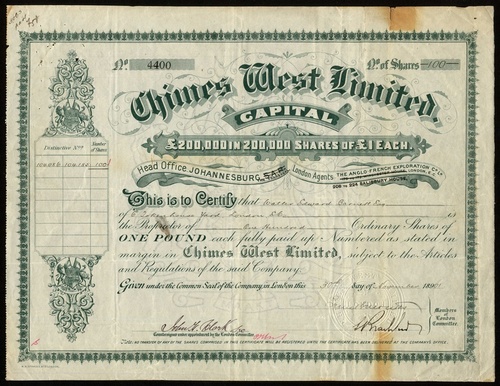 No. 4400
No. of Shares 100
Chimes West Limited.
CAPITAL
£200,000 IN 200,000 SHARES OF £1 EACH.
Head Office, JOHANNESBURG, S.A.R.
London Agents THE ANGLO FRENCH EXPLORATION Co. Ld
LONDON, E.C.
208 to 224 SALISBURY HOUSE,
Distinctive Nos.
Number of Shares
100
This is to Certify that Walter Edward Esq
of London is
the Proprietor of One Hundred Ordinary Shares of
ONE POUND each fully paid up Numbered as stated in
margin in Chimes West Limited, subject to the Articles
and Regulations of the said Company.
Given under the Common Seal of the Company in London this 30th day of
Members
of
London
Committee
Countersigned under appointment by the London Committee
NOTE: NO TRANSFER OF ANY OF THE SHARES COMPRISED IN THIS CERTIFICATE WILL BE REGISTERED UNTIL THE CERTIFICATE HAS BEEN DELIVERED AT THE COMPANY'S OFFICE.